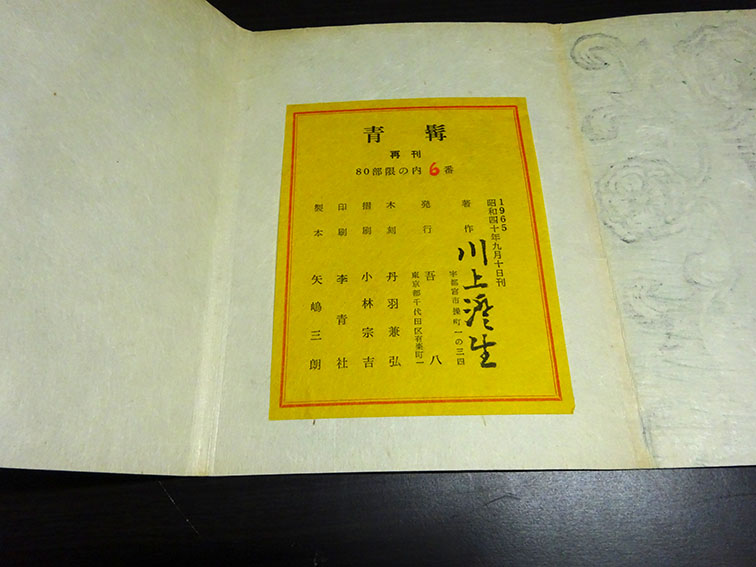 青髯
再刊
80部限の内 6番
1965
昭和四十年九月十日刊
著作 川上澄生
宇都宮市操町一の三四
発行 吾八
東京都千代田区有楽町一
木刻 丹羽兼弘
摺刷 小林宗吉
印刷 李青社
製本 矢嶋三朗